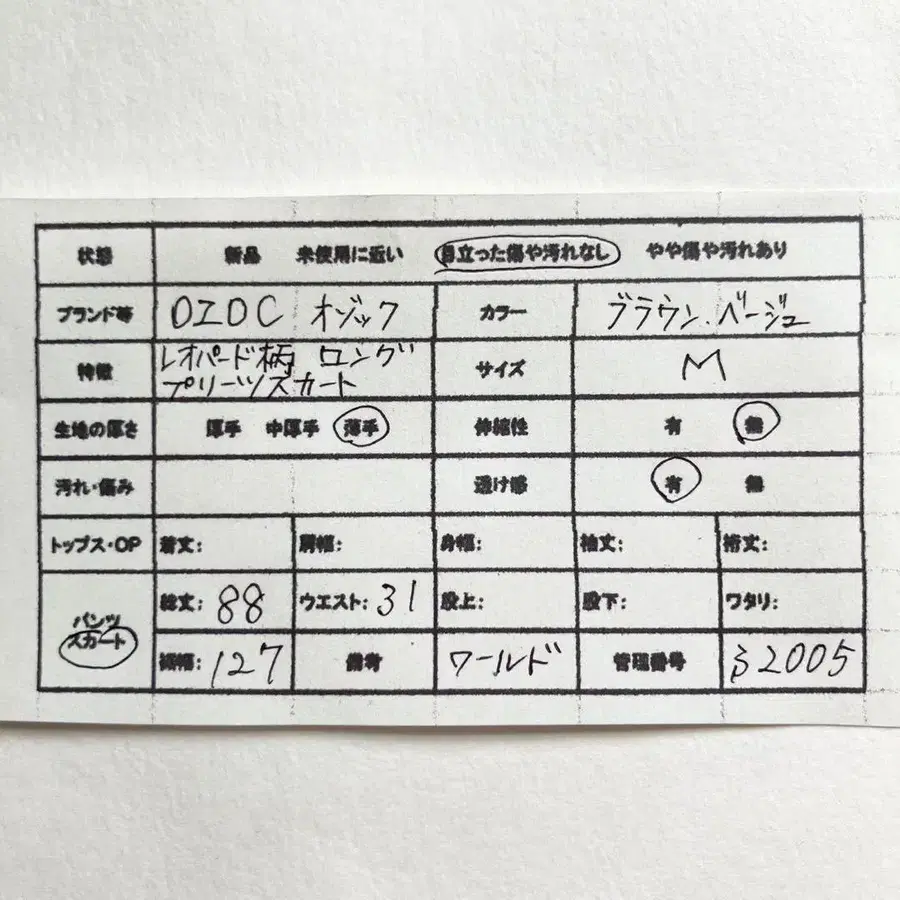 状態 新品 未使用に近い 目立った傷や汚れなし やや傷や汚れあり
ブランド等 OZOC オゾック カラー ブラウン.ベージュ
特徴 レオパード柄 ロング サイズ M
プリーツスカート
生地の厚さ 厚手 中厚手 薄手 伸縮性 有 無
汚れ・傷み 透け感 有 無
トップス・OP 着丈: 肩幅: 身幅: 袖丈: 裄丈:
パンツ 総丈: 88 ウエスト: 31 股上: 股下: ワタリ:
スカート 裾幅: 127 備考 ワールド 管理番号 る2005